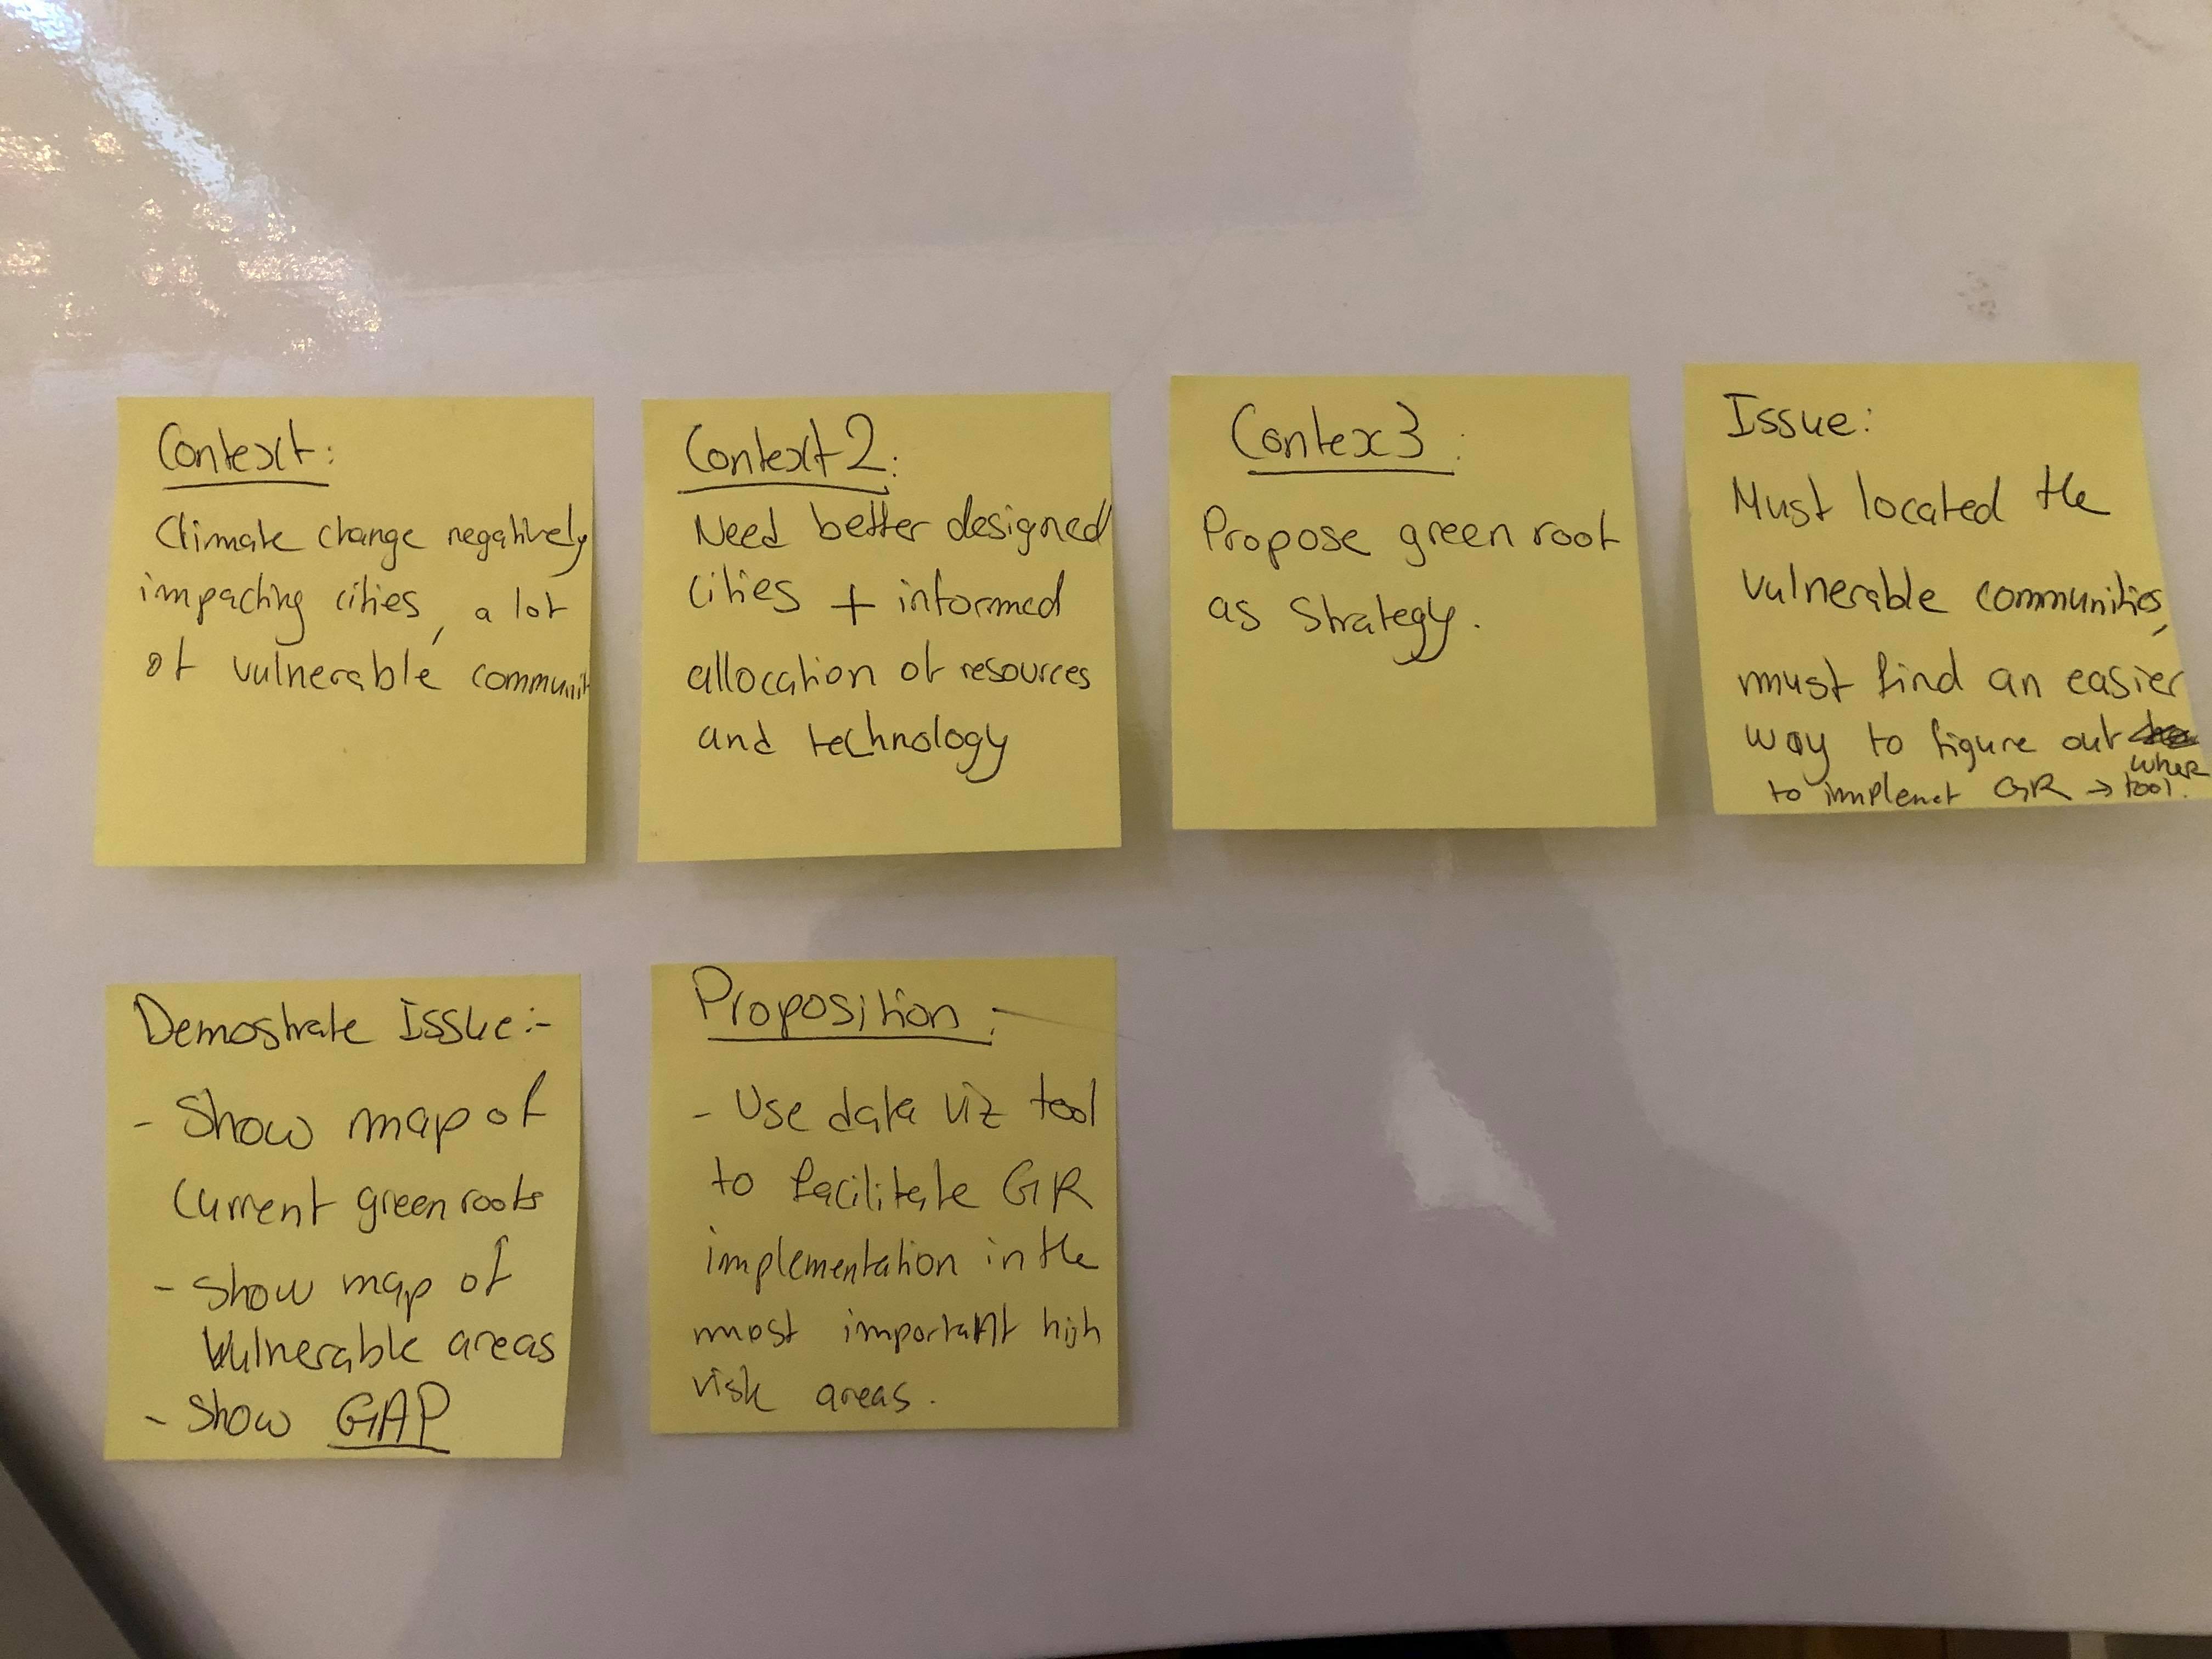 Context:
Climate change negatively
impacting cities, a lot
of vulnerable communit
Context 2:
Need better designed
cities + informed
allocation of resources
and technology
Contex 3:
Propose green roof
as Strategy.
Issue:
Must located the
vulnerable communities,
must find an easier
way to figure out
where
to implemet GR → tool.
Demostrate Issue:-
- Show map of
current green roofs
- Show map of
Vulnerable areas
- Show GAP
Proposition:
- Use data viz tool
to facilitate GR
implementation in the
most important high
risk areas.